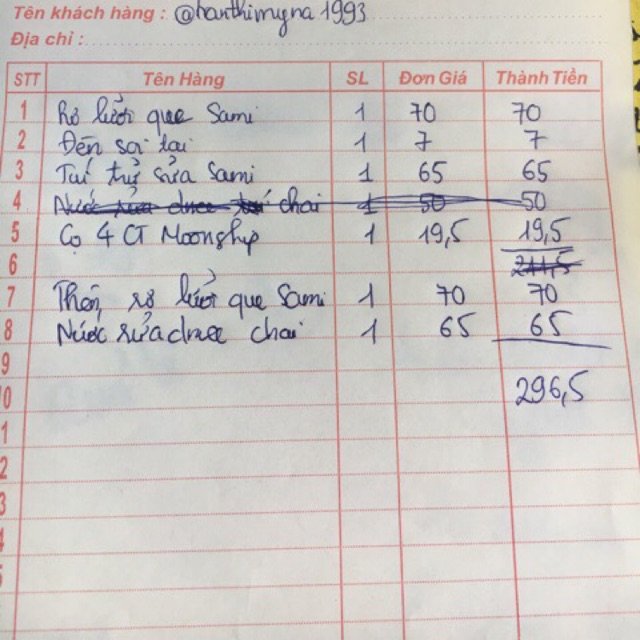 Tên khách hàng : @hanthimyna1993
Địa chỉ :
STT Tên Hàng SL Đơn Giá Thành Tiền
1 Rơ lưỡi que Sami 1 70 70
2 Đèn soi tai 1 7 7
3 Túi trữ sữa Sami 1 65 65
4 Nước rửa dnee chai 1 50 50
5 Cọ 4 CT Moonship 1 19,5 19,5
6 211,5
7 Thêm rơ lưỡi que Sami 1 70 70
8 Nước rửa dnee chai 1 65 65
9
0 296,5
1
2
3